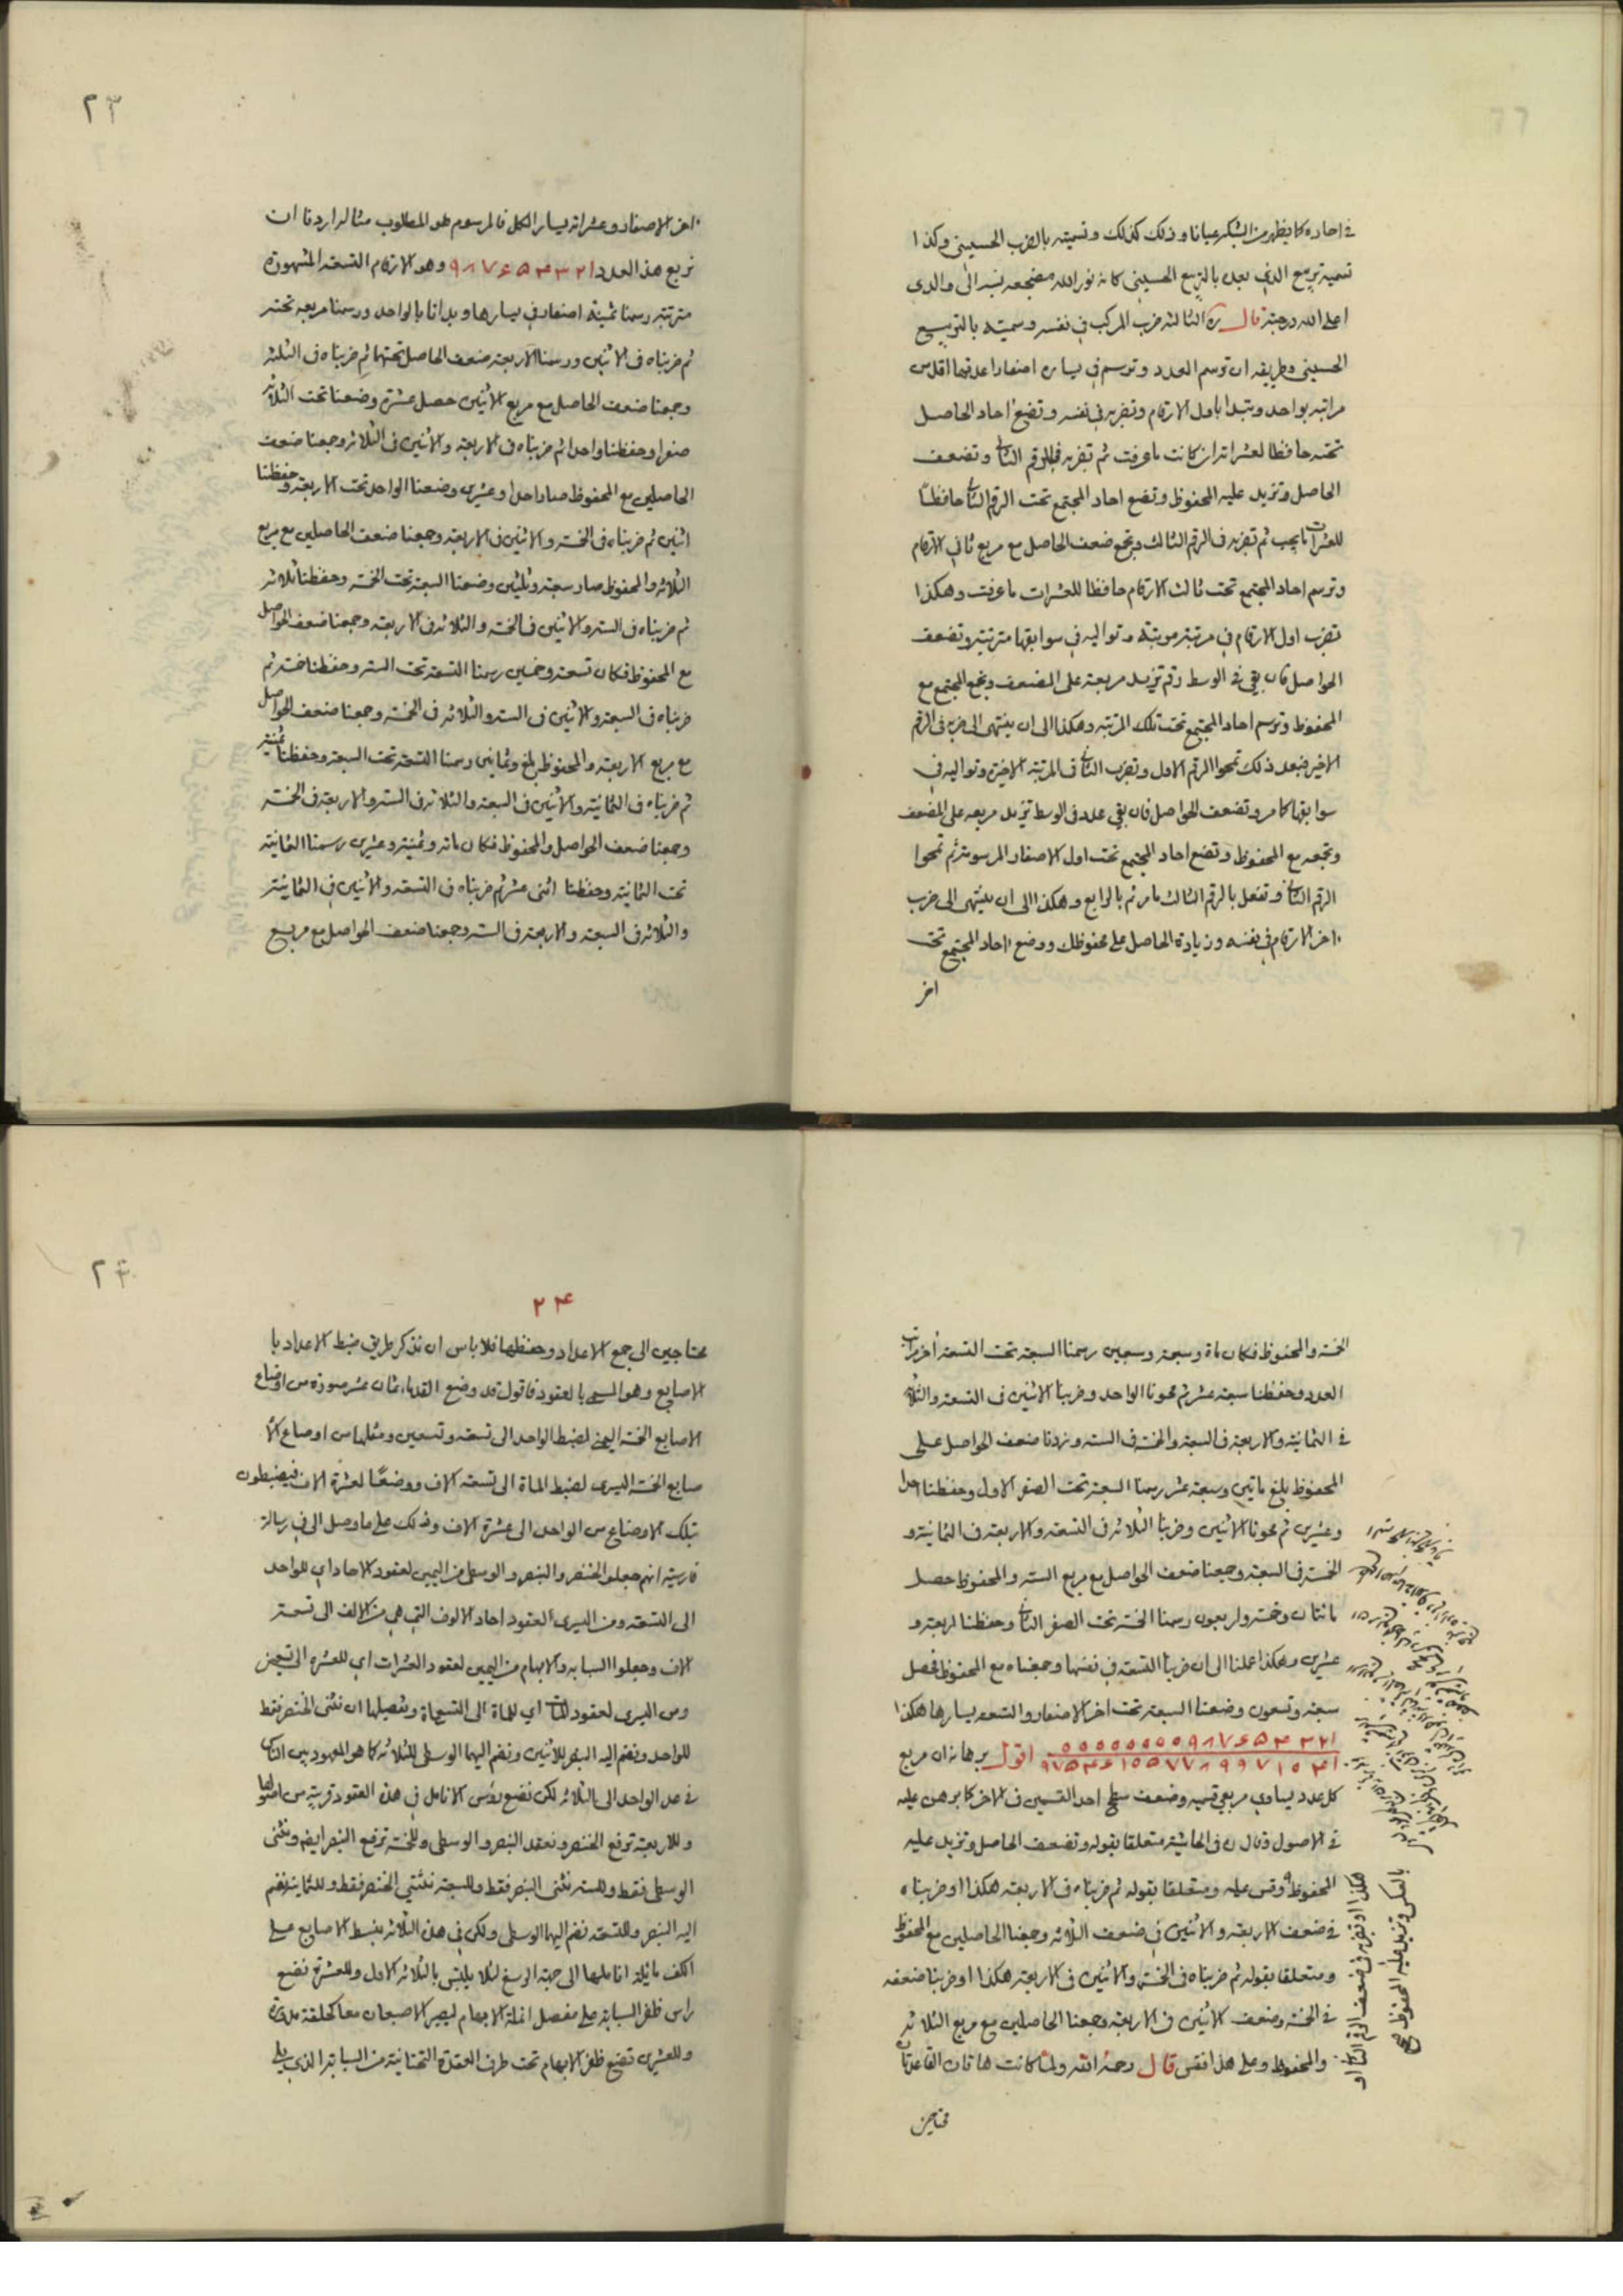 في احاده كما يظهر من الشكر عيانا وذلك كذلك وتسميته بالضرب الحسيني وكذا
تسمية تربيع الذي بعده بالتربيع الحسيني كانه نور الله مضجعه نسبه الى والدي
اعلى الله درجته قال ره الثالثه ضرب المركب في نفسه وسميته بالتربيع
الحسيني وطريقه ان ترسم العدد وترسم في يساره اصفارا عدتها اقل من
مراتبه بواحد وتبتدا باول الارقام وتضربه في نفسه وتضع احاد الحاصل
تحته حافظا لعشراته ان كانت ما عرفت ثم تضربه في الرقم الثاني وتضعف
الحاصل وتزيد عليه المحفوظ وتضع احاد المجتمع تحت الرقم الثاني حافظا
للعشرات ما يجب ثم تضربه في الرقم الثالث وتجمع ضعف الحاصل مع مربع ثاني الارقام
وترسم احاد المجتمع تحت ثالث الارقام حافظا للعشرات ما عرفت وهكذا
تضرب اول الارقام في مرتبة مرتبة وتواليه في سوابقها مترتبة وتضعف
الحواصل فان بقي في الوسط رقم تزيد مربعه على المضعف وتجمع المجتمع مع
المحفوظ وترسم احاد المجتمع تحت تلك المرتبه وهكذا الى ان ينتهى الى ضربه في الرقم
الاخير فبعد ذلك تمحوا الرقم الاول وتضرب الثاني في المرتبة الاخيرة وتواليه في
سوابقها كما مر وتضعف الحواصل فان بقي عدد في الوسط تزيد مربعه على المضعف
وتجمعه مع المحفوظ وتضع احاد المجتمع تحت اول الاصفار المرسومة ثم تمحوا
الرقم الثاني وتفعل بالرقم الثالث ما مر ثم بالرابع وهكذا الى ان ينتهى الى ضرب
اخر الارقام في نفسه وزيادة الحاصل على محفوظك ووضع احاد المجتمع تحت
اخر
٢٣
اخر الاصفار وعشراته يسار الكل فالمرسوم هو المطلوب مثاله اردنا ان
نربع هذا العدد ٩٨٧۶۵۴٣٢١ وهو الارقام التسعه المشهورة
مترتبة رسمنا ثمنية اصفار في يسارها وبداتا بالواحد ورسمنا مربعه تحته
ثم ضربناه في الاثنين ورسمنا الاربعه ضعف الحاصل تحتها ثم ضربناه في الثلثه
وجمعنا ضعف الحاصل مع مربع الاثنين حصل عشرة وضعنا تحت الثلاثه
صفرا وحفظنا واحدا ثم ضربناه في الاربعه والاثنين في الثلاثه وجمعنا ضعف
الحاصلين مع المحفوظ صار احدا وعشرين وضعنا الواحد تحت الاربعه وحفظنا
اثنين ثم ضربناه في الخمسه والاثنين في الاربعه وجمعنا ضعف الحاصلين مع مربع
الثلاثه والمحفوظ صار سبعه وثلثين وضعنا السبعه تحت الخمسه وحفظنا ثلاثه
ثم ضربناه في السته والاثنين في الخمسه والثلاثه في الاربعه وجمعنا ضعف الحواصل
مع المحفوظ فكان تسعه وخمسين رسمنا التسعه تحت السته وحفظنا خمسه ثم
ضربناه في السبعه والاثنين في السته والثلاثه في الخمسه وجمعنا ضعف الحواصل
مع مربع الاربعه والمحفوظ بلغ وثمانين رسمنا التسعه تحت السبعه وحفظنا ثمنيه
ثم ضربناه في الثمانيه والاثنين في السبعه والثلاثه في السته والاربعه في الخمسه
وجمعنا ضعف الحواصل والمحفوظ فكان ماة وثمنية وعشرين رسمنا الثمانيه
تحت الثمانيه وحفظنا اثنى عشر ثم ضربناه في التسعه والاثنين في الثمانيه
والثلاثه في السبعه والاربعه في السته وجمعنا ضعف الحواصل مع مربع
الخمسه والمحفوظ فكان ماة وسبعة وسبعين رسمنا السبعه تحت التسعه اخر مراتب
العدد وحفظنا سبعه عشر ثم محونا الواحد وضربنا الاثنين في التسعه والثلاثه
في الثمانيه والاربعه في السبعه والخمسه في السته وزدنا ضعف الحواصل على
المحفوظ بلغ ماتين وسبعه عشر رسمنا السبعه تحت الصفر الاول وحفظنا احدا
وعشرين ثم محونا الاثنين وضربنا الثلاثه في التسعه والاربعه في الثمانيه و
الخمسه في السبعه وجمعنا ضعف الحواصل مع مربع السته والمحفوظ حصل
مائتان وخمسه واربعون رسمنا الخمسه تحت الصفر الثاني وحفظنا اربعه و
عشرين وهكذا عملنا الى ان ضربنا التسعه في نفسها وجمعناه مع المحفوظ فحصل
سبعه وتسعون وضعنا السبعه تحت اخر الاصفار والتسعه يسارها هكذا
اقول برهانه ان مربع
كل عدد يساوي مربعي قسميه وضعف سطح احد القسمين في الاخر كما برهن عليه
في الاصول وقال ره في الحاشيه متعلقا بقوله وتضعف الحاصل وتزيد عليه
المحفوظ وقس عليه ومتعلقا بقوله ثم ضربناه في الاربعه هكذا اوضربناه
في ضعف الاربعه والاثنين في ضعف الثلاثه وجمعنا الحاصلين مع المحفوظ
ومتعلقا بقوله ثم ضربناه في الخمسه والاثنين في الاربعه هكذا اوضربنا ضعفه
في الخمسه وضعف الاثنين في الاربعه وجمعنا الحاصلين مع مربع الثلاثه
والمحفوظ وعلى هذا فقس قال رحمه الله ولما كانت هاتان القاعدتان
هكذا او تضربه في ضعف الرقم الثاني او
بالعكس وتزيد عليه المحفوظ صح
محتاجين
٢۴
٢۴
محتاجين الى جمع الاعداد وحفظها فلا باس ان نذكر طريق ضبط الاعداد با
الاصابع وهو المسمى بالعقود فاقول قد وضع القدماء ثمان عشر صورة من اوضاع
الاصابع الخمسه اليمنى لضبط الواحد الى تسعه وتسعين ومثلها من اوضاع الا
صابع الخمسه اليسرى لضبط الماة الى تسعه الاف ووضعا لعشرة الاف فيضبطون
بتلك الاوضاع من الواحد الى عشرة الاف وذلك على ما وصل الى في رسالة
فارسية انهم جعلوا الخنصر والبنصر والوسطى من اليمين لعقود الاحاد اي للواحد
الى التسعه ومن اليسرى لعقود احاد الالوف التي هي من الالف الى تسعة
الاف وجعلوا السبابه والابهام من اليمين لعقود العشرات اي للعشره الى تسعين
ومن اليسرى لعقود المات اي للماة الى التسعماة وتفصيلها ان نثنى الخنصر فقط
للواحد ونضم اليه البنصر للاثنين ونضم اليهما الوسطى للثلاثه كما هو المعهود بين الناس
في عد الواحد الى الثلاثه لكن نضع رؤس الانامل في هذه العقود قريبة من اصولها
وللاربعة نرفع الخنصر ونعقد البنصر والوسطى وللخمسه نرفع البنصر ايضا ونثنى
الوسطى فقط وللسته نثنى البنصر فقط وللسبعه نثني الخنصر فقط وللثمانيه نضم
اليه البنصر وللتسعه نضم اليهما الوسطى ولكن في هذه الثلاثه نبسط الاصابع على
الكف مائلة اناملها الى جهة الرسغ لئلا يلتبس بالثلاثه الاول وللعشرة نضع
راس ظفر السبابة على مفصل انملة الابهام ليصير الاصبعان معا كحلقة مدورة
وللعشرين نضع ظفر الابهام تحت طرف العقدة التحتانية من السبابه الذي يلي